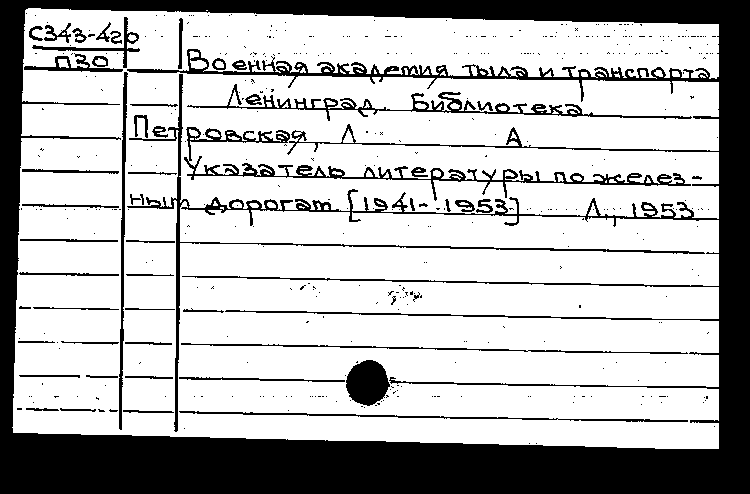 С343-420
П30
Военная академия тыла и транспорта.
Ленинград. Библиотека.
Петровская, Л. А.
Указатель литературы по желез-
ным дорогам [1941-1953] Л., 1953